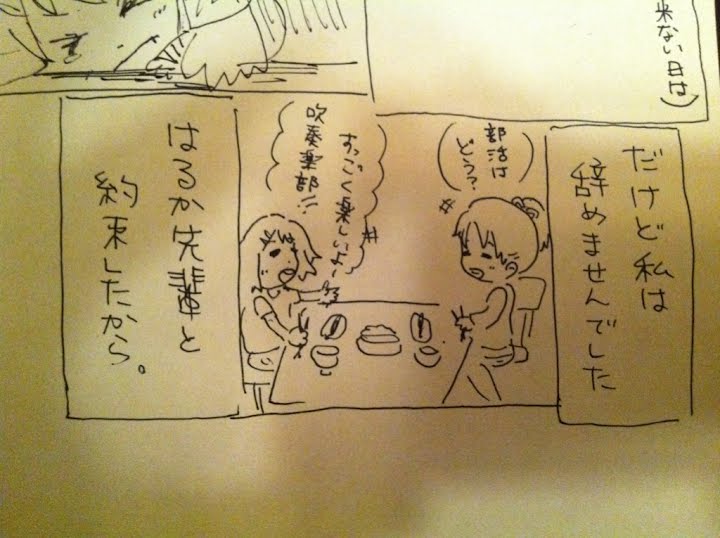 来ない日は）
だけど私は
辞めませんでした
部活は
どう？
すっごく楽しいよー
吹奏楽部!!
はるか先輩と
約束したから。